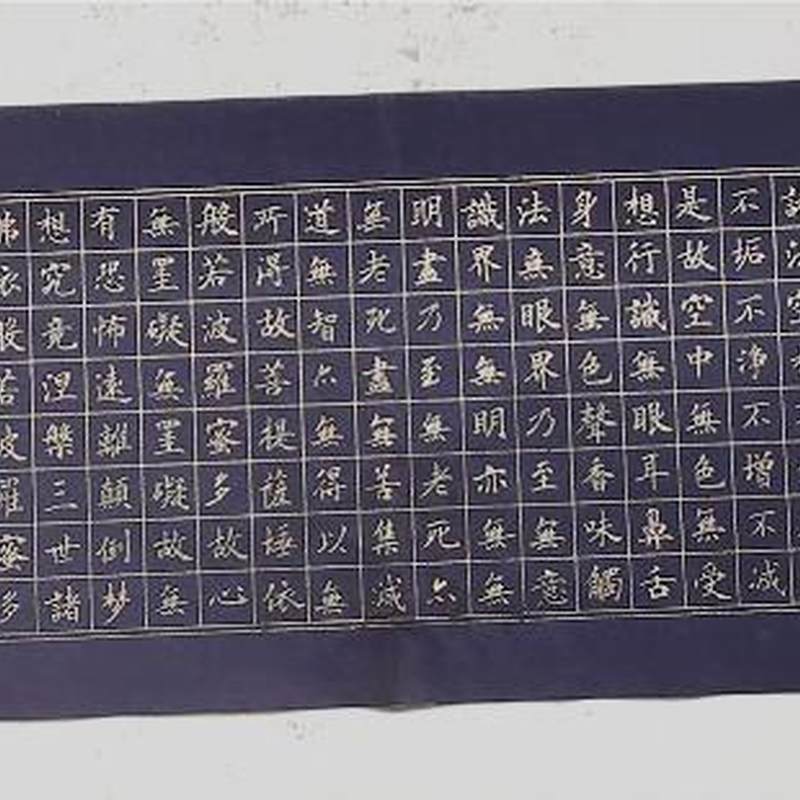 不垢不净不增不减
是故空中無色無受
想行識無眼耳鼻舌
身意無色聲香味觸
法無眼界乃至無意
識界無無明亦無無
明盡乃至無老死亦
無老死盡無苦集减
道無智亦無得以無
所得故菩提薩埵依
般若波羅蜜多故心
無罣礙無罣礙故無
有恐怖遠離顛倒梦
想究竟涅槃三世諸
佛依般若波羅蜜多